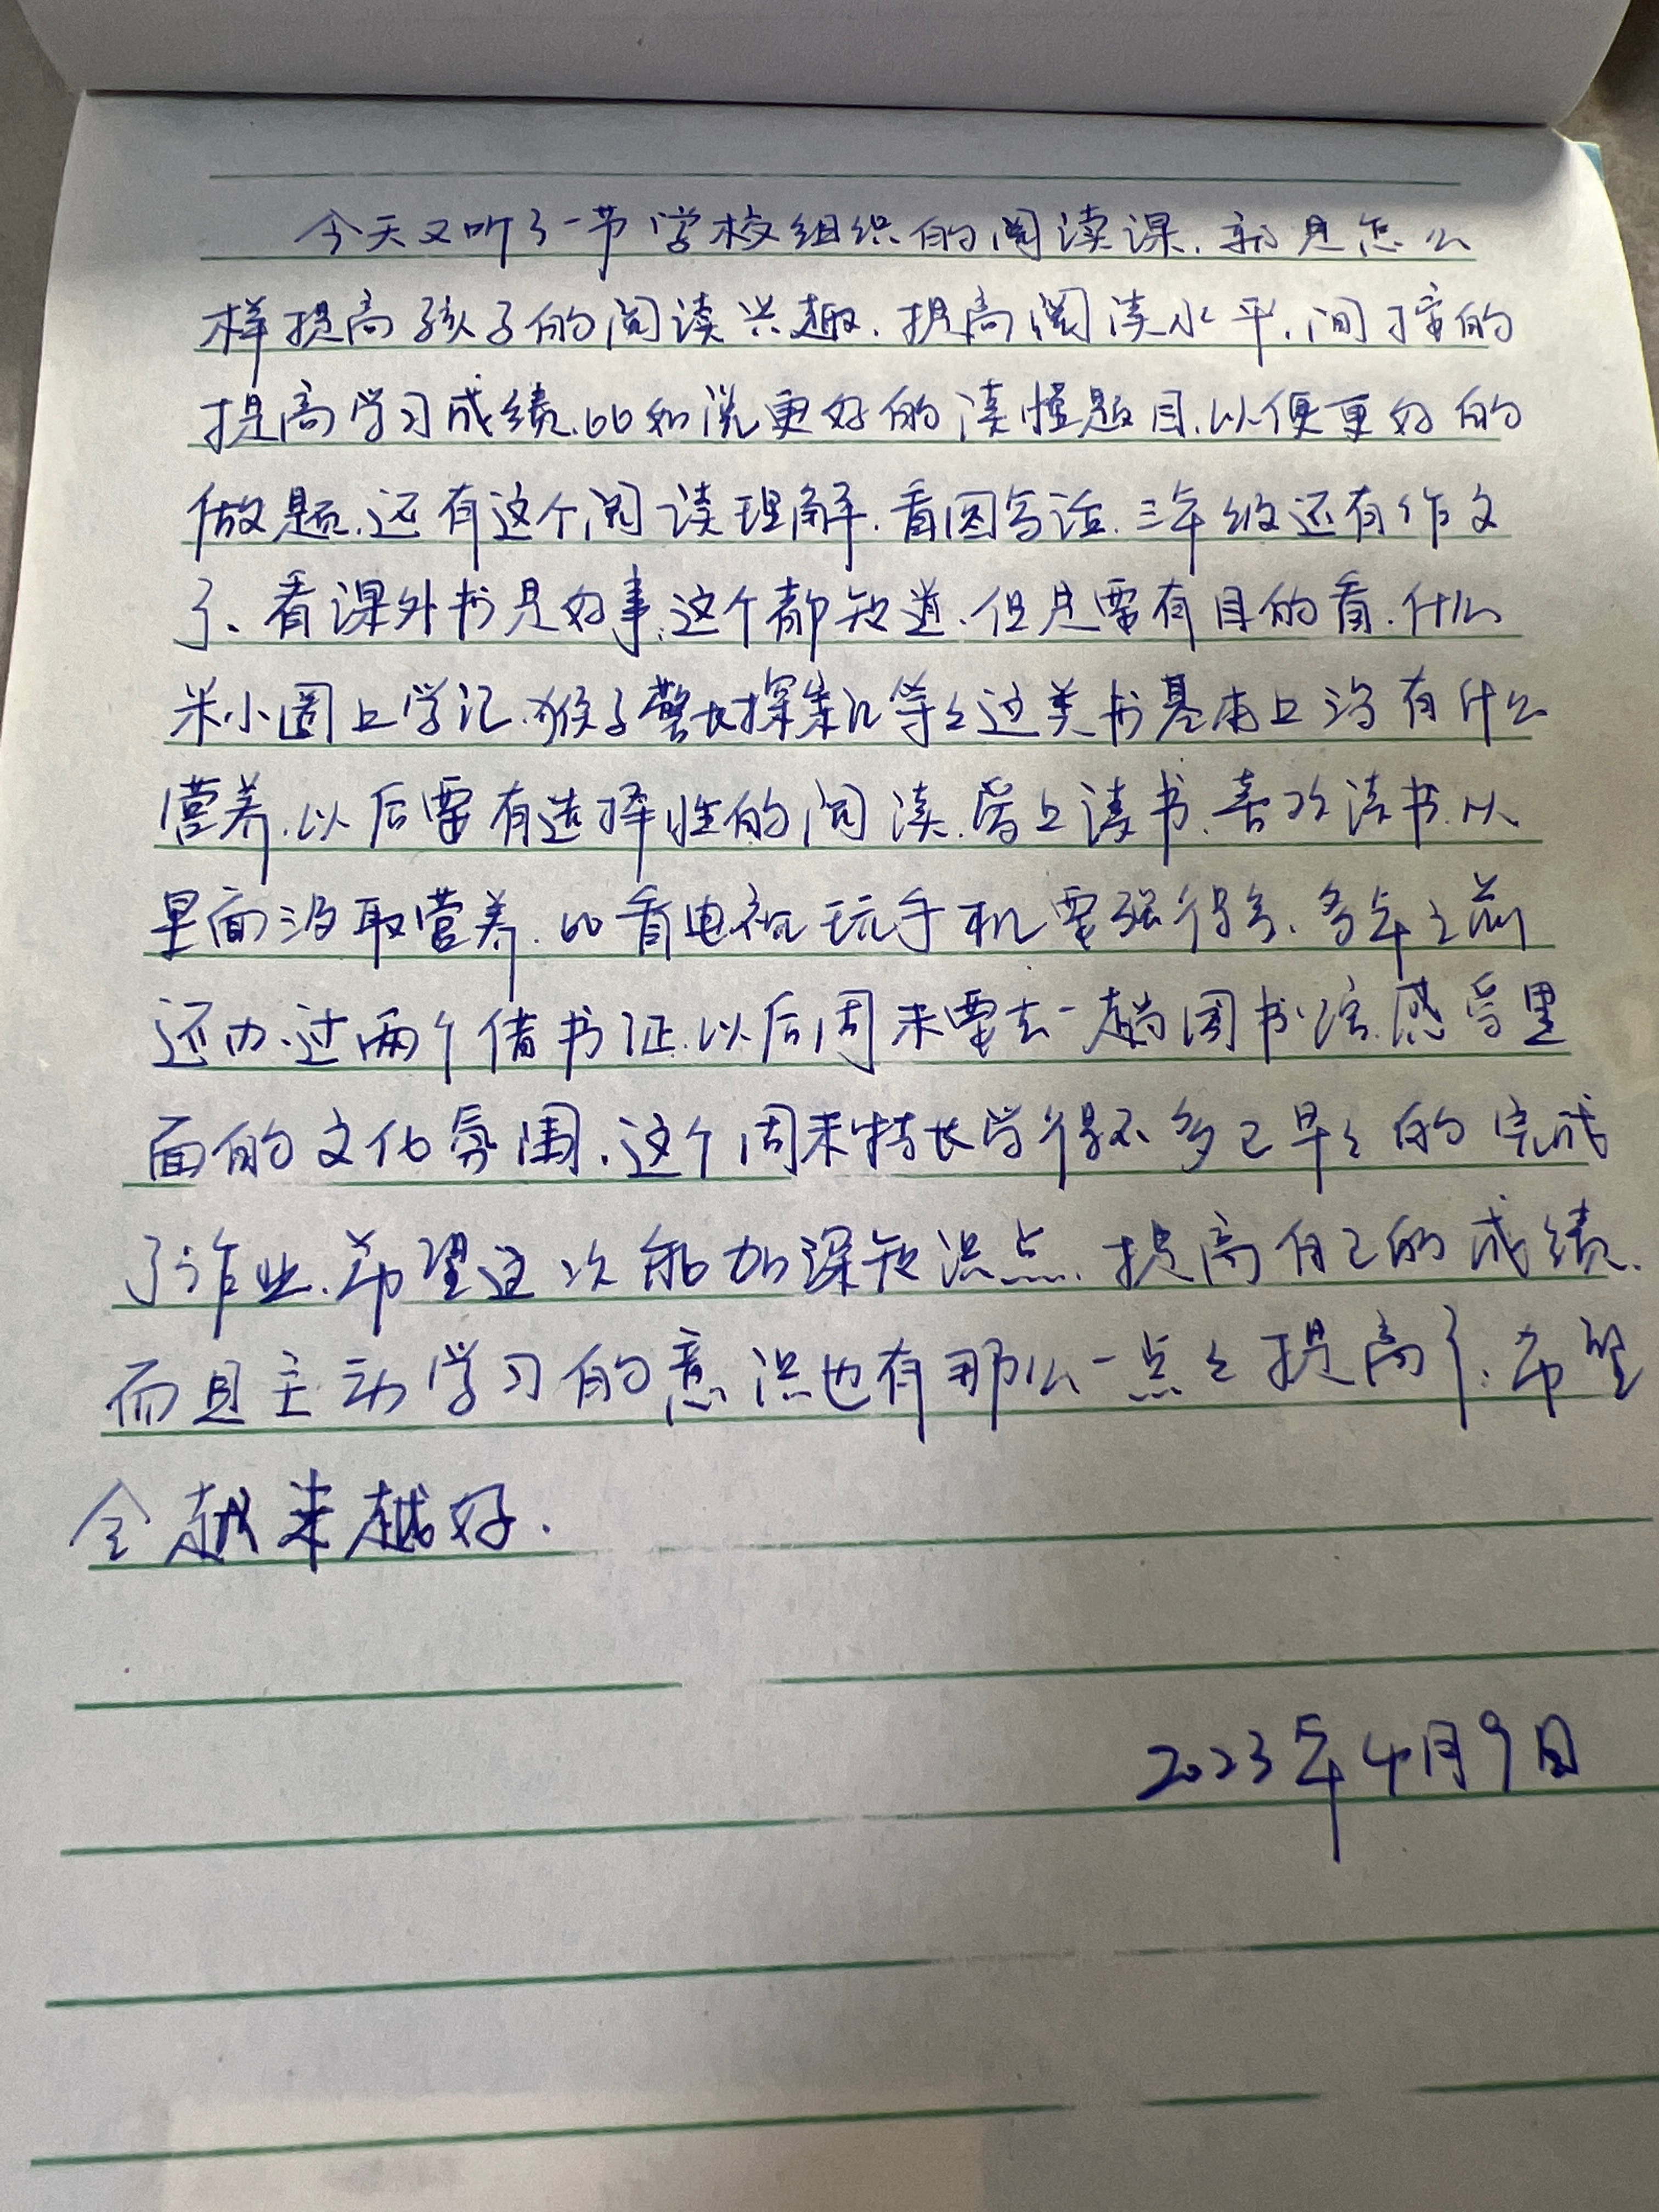 今天又听了一节学校组织的阅读课.就是怎么
样提高孩子的阅读兴趣.提高阅读水平.间接的
提高学习成绩.比如说更好的读懂题目.以便更好的
做题.还有这个阅读理解.看图写话.三年级还有作文
了、看课外书是好事.这个都知道.但是要有目的看.什么
米小圈上学记.猴子警长探案记等等这类书基本上没有什么
营养.以后要有选择性的阅读.爱上读书.喜欢读书.从
里面汲取营养.比看电视玩手机要强得多.多年之前
还办过两个借书证.以后周末要去一趟图书馆.感受里
面的文化氛围.这个周末特长学得不多已早早的完成
了作业.希望这次能加深知识点.提高自己的成绩.
而且主动学习的意识也有那么一点点提高了.希望
会越来越好.
2023年4月9日